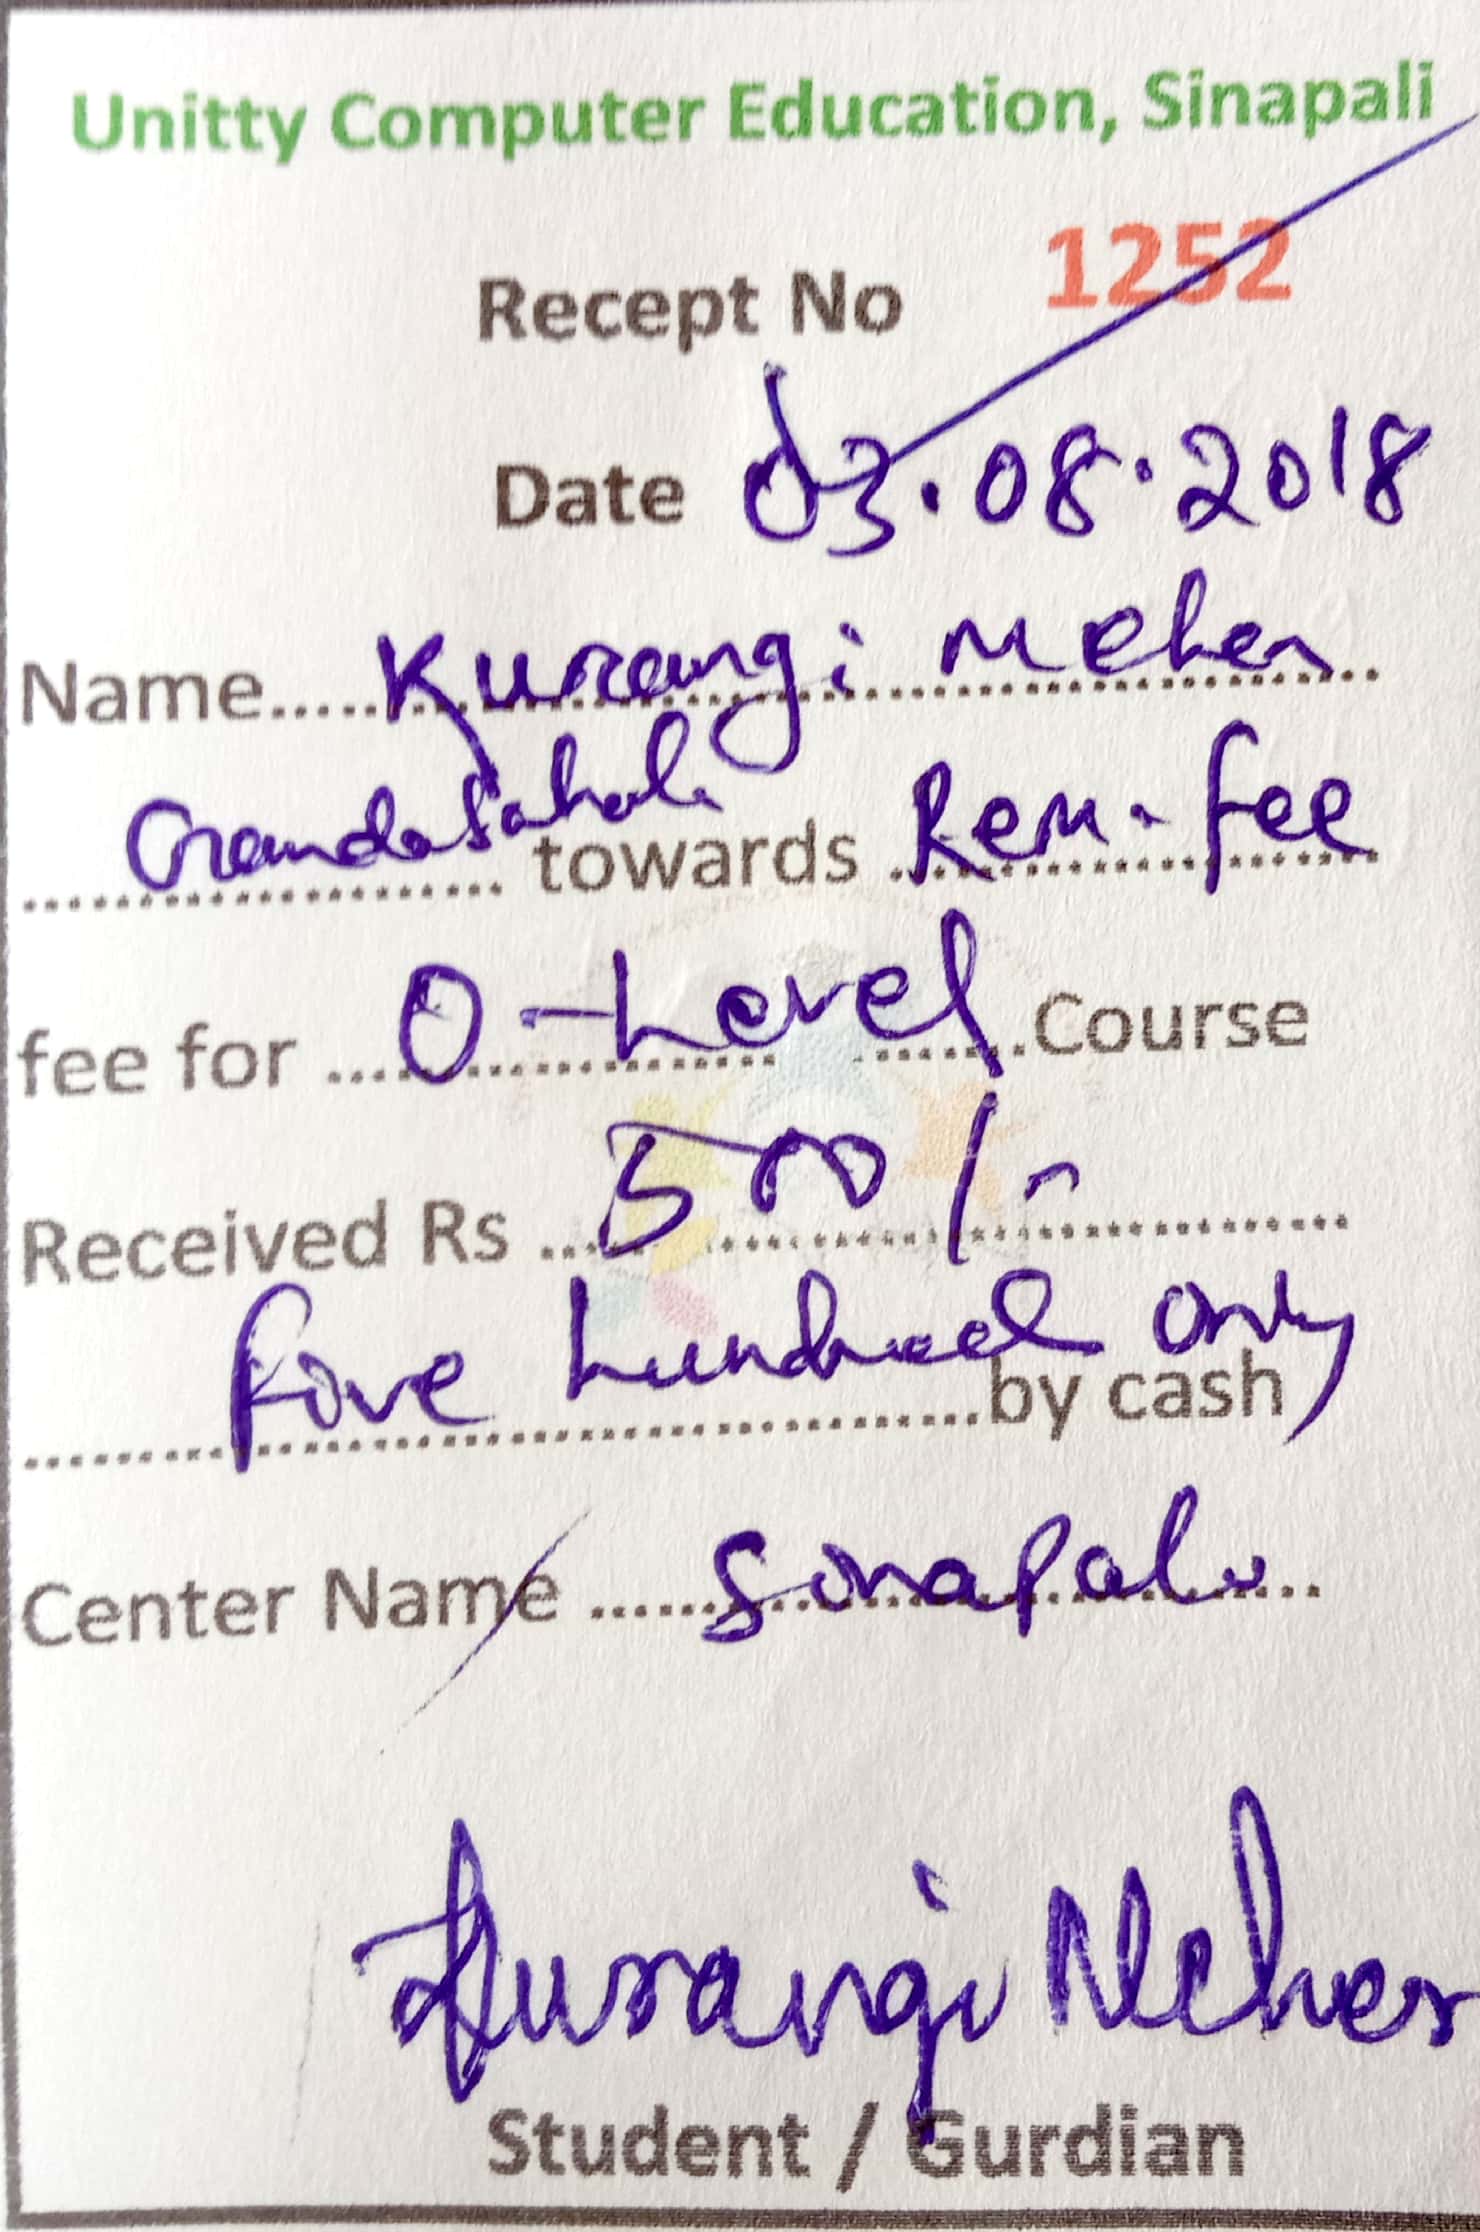 Unitty Computer Education, Sinapali
Recept No 1252
Date 03.08.2018
Name.....Kurangi Meher
towards Rem. fee
fee for ....O-Level.....Course
Received Rs ...500/-
five hundred only by cash
Center Name ......Sinapali
Kurangi Meher
Student / Gurdian